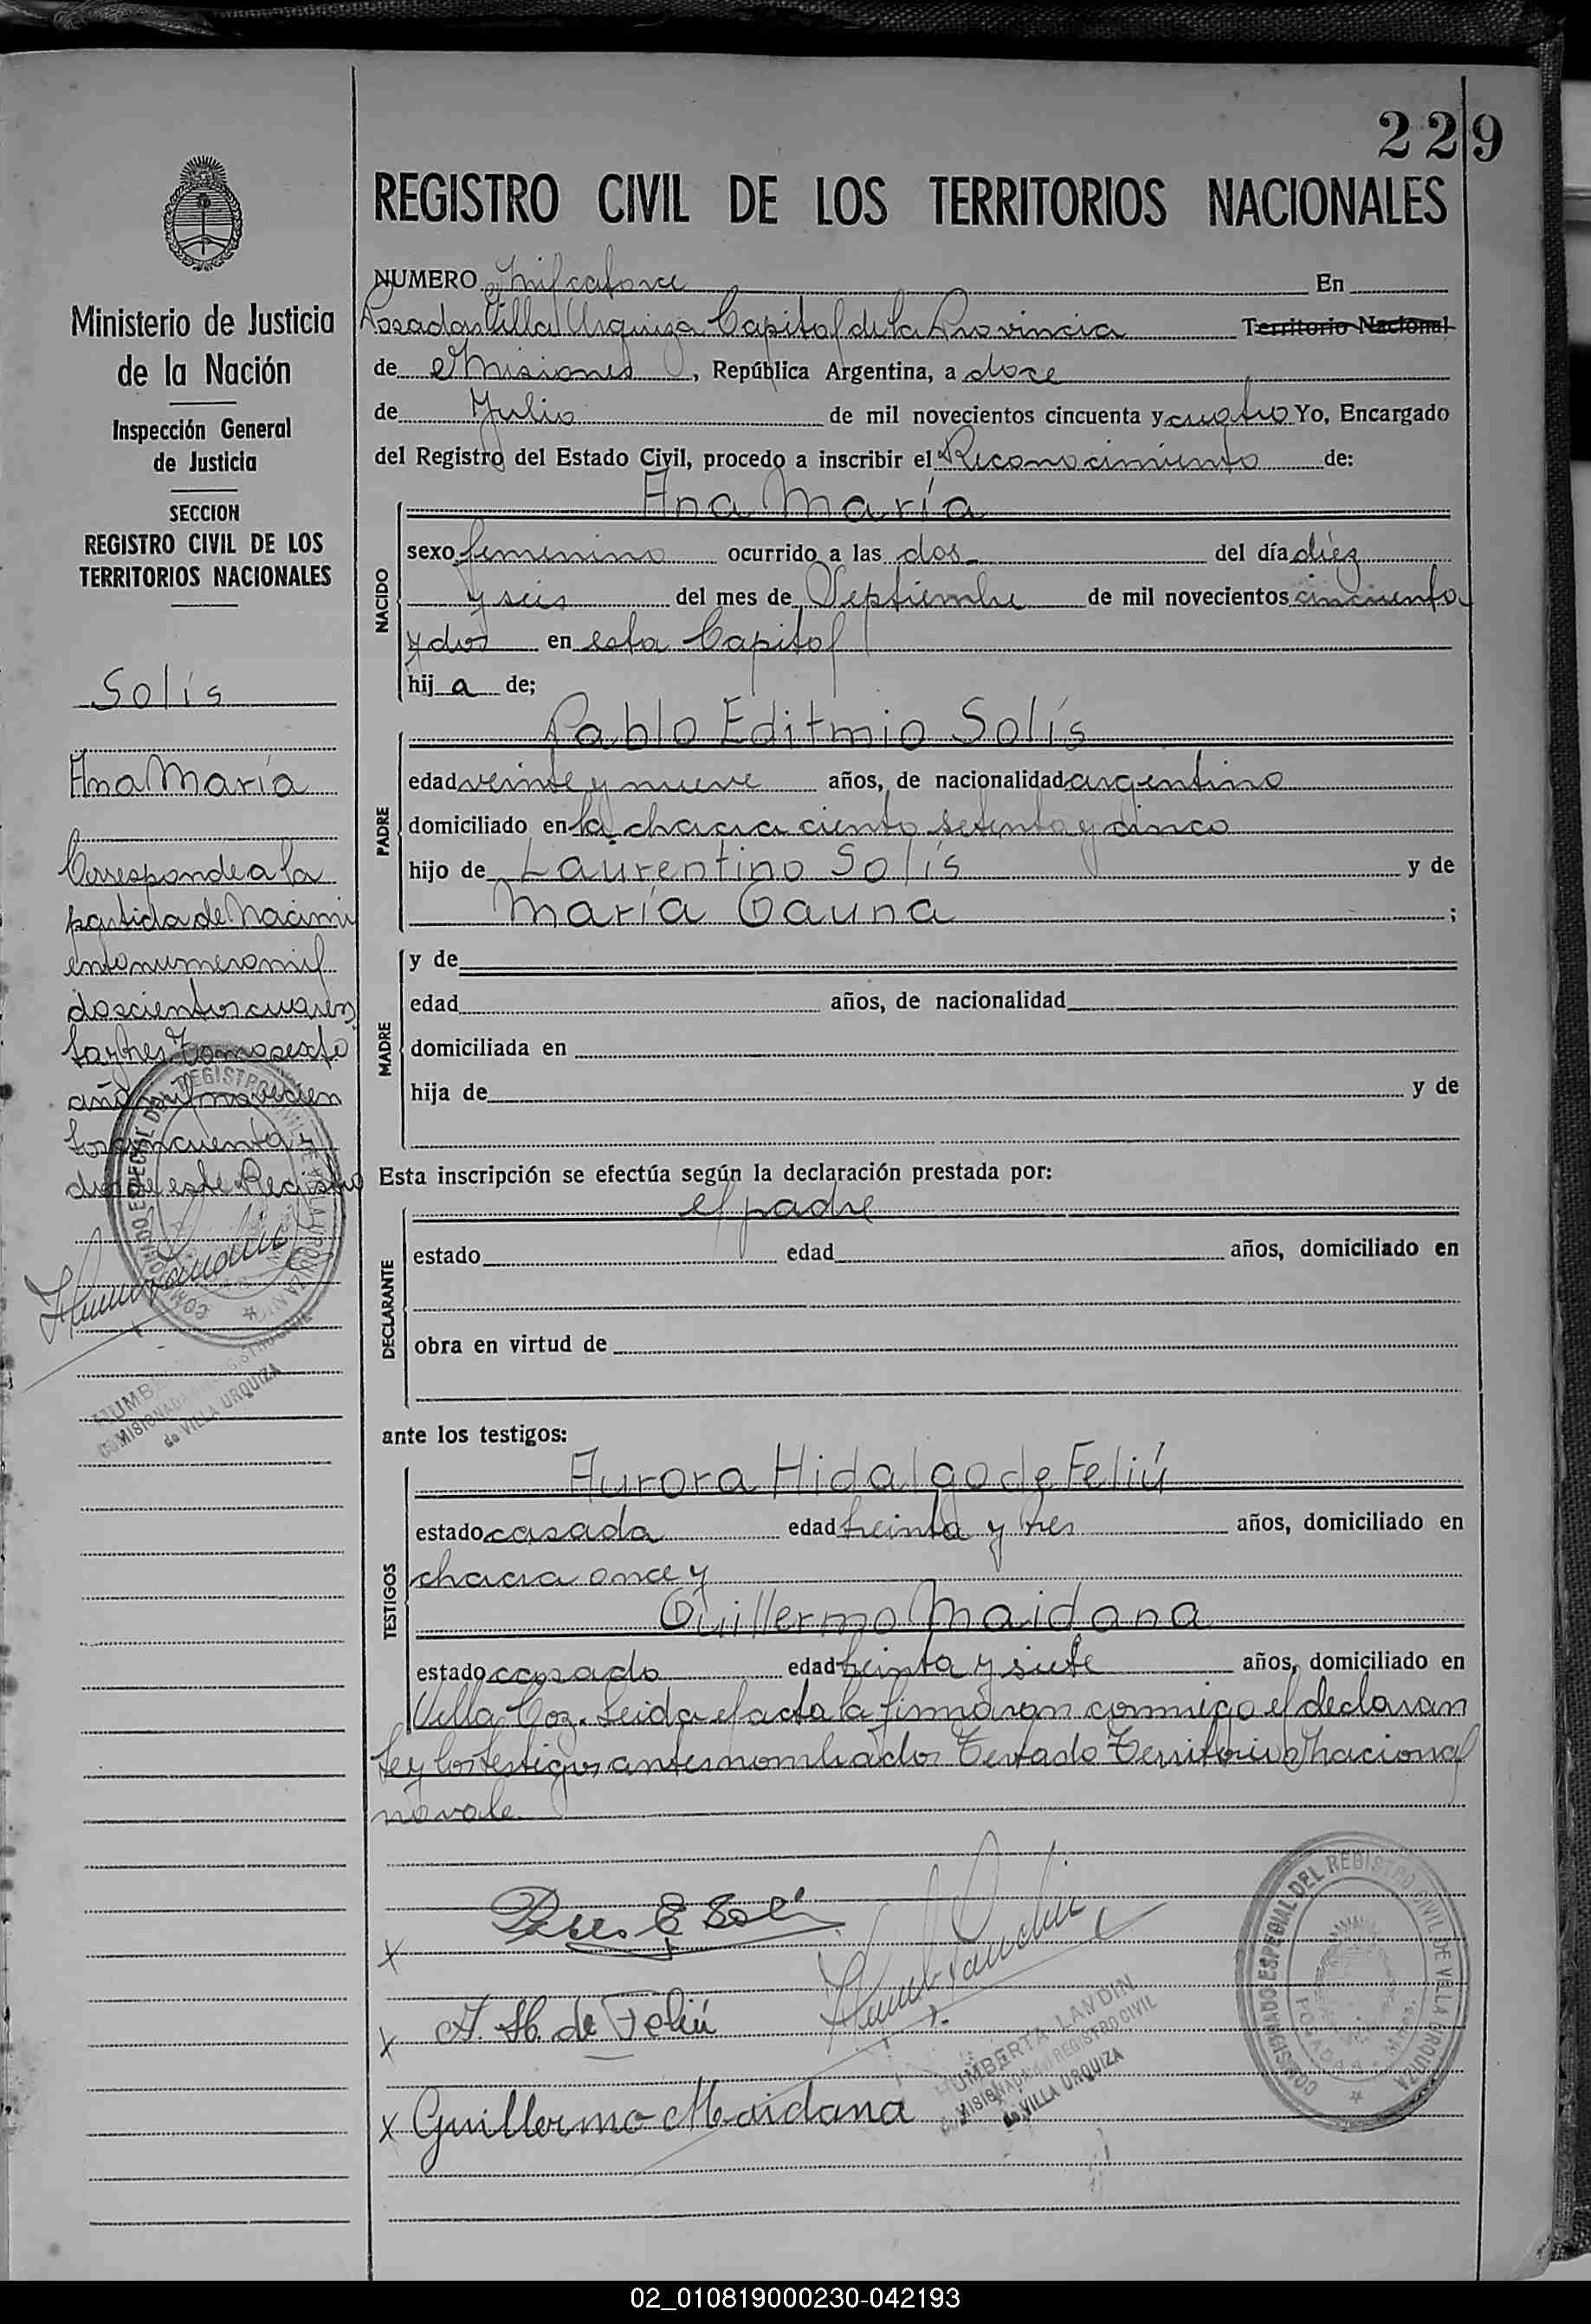 229
REGISTRO CIVIL DE LOS TERRITORIOS NACIONALES
Ministerio de Justicia
de la Nación
Inspección General
de Justicia
SECCION
REGISTRO CIVIL DE LOS
TERRITORIOS NACIONALES
Solís
Ana María
Corresponde a la
partida de Nacimi
ento numero mil
doscientos cuaren
ta y tres Tomo sexto
año mil novecien
tos cincuenta y
dos de este Registro
COMISIONADO ESPECIAL DEL REGISTRO CIVIL DE VILLA URQUIZA
de VILLA URQUIZA
NUMERO Mil catorce En
Posadas Villa Urquiza Capital de la Provincia Territorio Nacional
de Misiones, República Argentina, a doce
de Julio de mil novecientos cincuenta y cuatro Yo, Encargado
del Registro del Estado Civil, procedo a inscribir el Reconocimiento de:
NACIDO
Ana María
sexo femenino ocurrido a las dos del día diez
y seis del mes de Septiembre de mil novecientos cincuenta
y dos en esta Capital
hija de;
PADRE
Pablo Editmio Solís
edad veinte y nueve años, de nacionalidad argentino
domiciliado en la chacra ciento setenta y cinco
hijo de Laurentino Solís y de
María Gauna ;
MADRE
y de
edad años, de nacionalidad
domiciliada en
hija de y de
Esta inscripción se efectúa según la declaración prestada por:
DECLARANTE
el padre
estado edad años, domiciliado en
obra en virtud de
ante los testigos:
TESTIGOS
Aurora Hidalgo de Feliú
estado casada edad treinta y tres años, domiciliado en
chacra once y
Guillermo Maidana
estado casado edad treinta y siete años, domiciliado en
Villa Coz. Leida el acta la firmaron conmigo el declaran
te y los testigos antes nombrados Testado Territorio Nacional
no vale.
x Pablo E Solís
x A. H. de Feliú
x Guillermo Maidana
HUMBERTA LANDIN
COMISIONADA REGISTRO CIVIL
de VILLA URQUIZA
COMISIONADO ESPECIAL DEL REGISTRO CIVIL DE VILLA URQUIZA
POSADAS - Mnes.
02_010819000230-042193